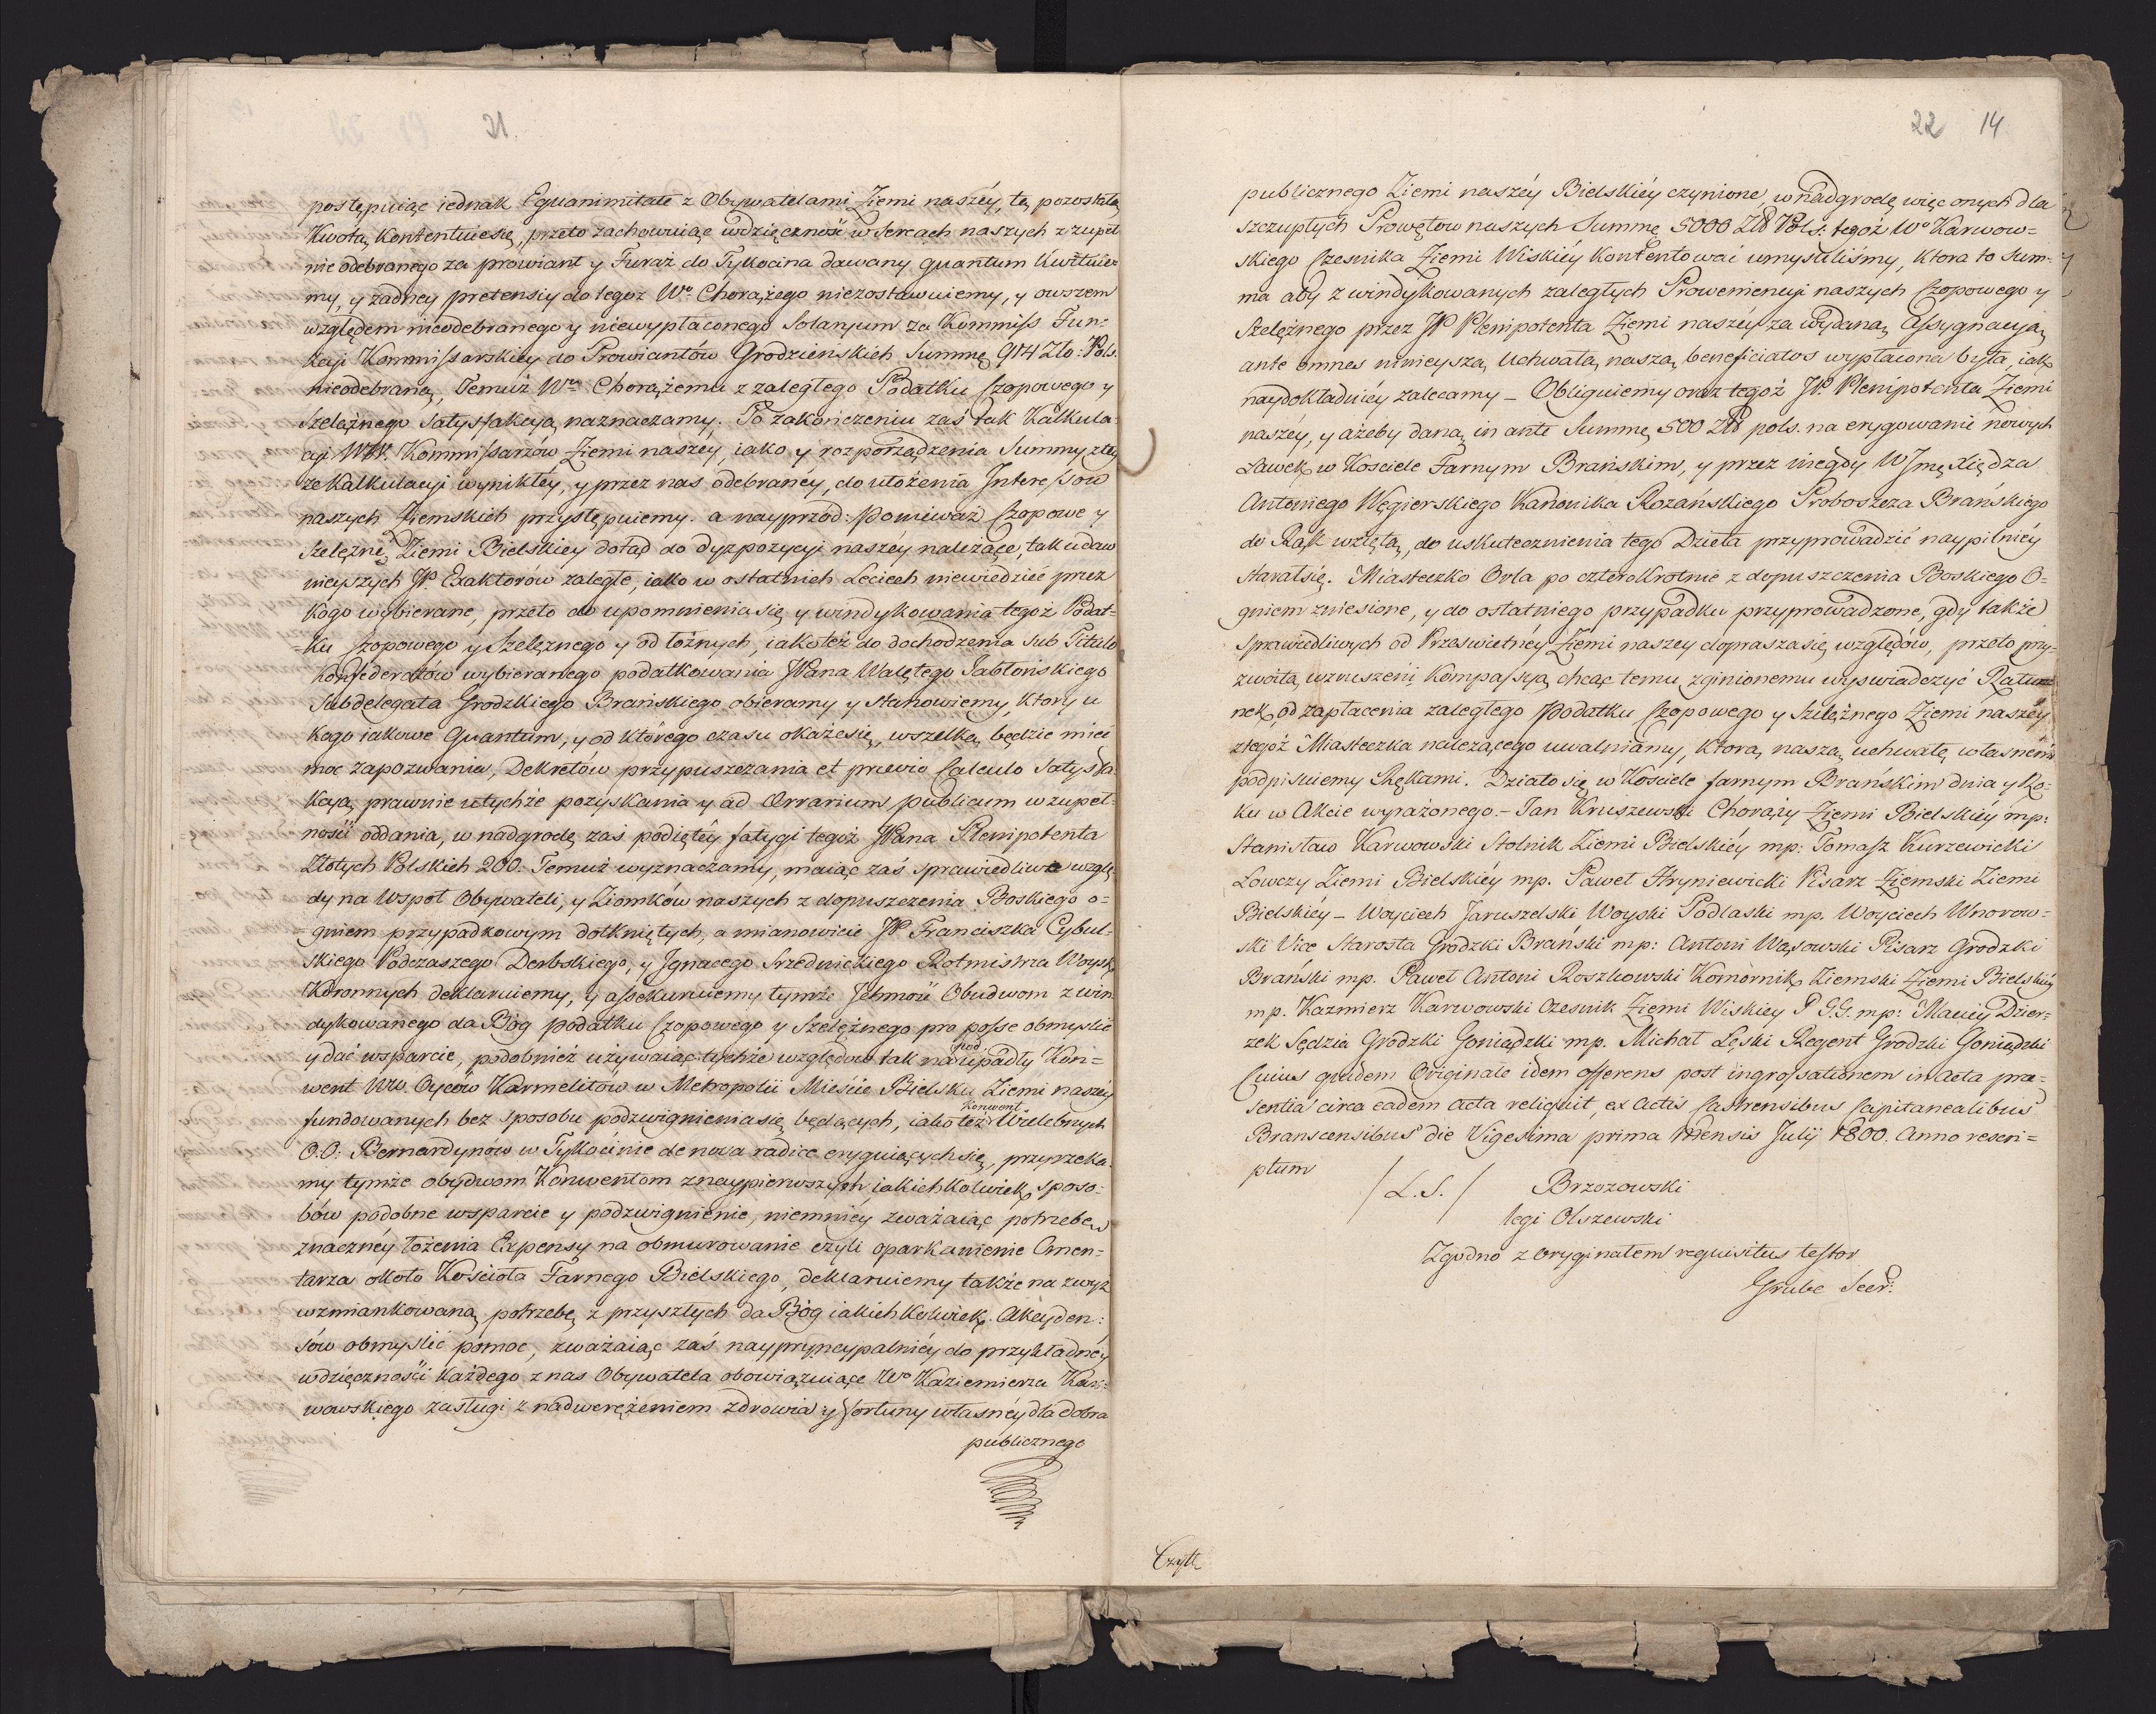 21.
postępuiąc iednak Equanimitate z Obywatelami Ziemi naszéy, tą pozostałą
Kwotą Kontentuiesię, przeto zachowuiąc wdzięczność w Sercach naszych z zupeł
nie odebranego za prowiant y Furaż do Tykocina dawany quantum Kwituie
my, y żadney pretensiy do tegoż Wo Chorążego niezostawuiemy, y owszem
względem nieodebranego y niewypłaconego Solarjum za Kommiss Fun-
kcyi Kommissarskiéy do Prowiantów Grodzieńskich Summę 914 Zło: Pols.
nieodebraną, Temuż Wu Chorążemu z zaległego Podatku Czopowego y
Szelężnego Satysfakcyą naznaczamy. Po zakończeniu zaś tak Kalkula-
cyi WW. Kommissarzów Ziemi naszéy, iako y rozporządzenia Summy z tey
że Kalkulacyi wynikłéy, y przez nas odebranéy, do ułożenia Interessow
naszych Ziemskich przystępuiemy. a nayprzod: Poniważ Czopowe y
Szelężne Ziemi Bielskiey dotąd do dyzpozycyi naszéy należące, tak u daw
nieyszych JP. Exaktorów zaległe, iako w ostatnich Leciech niewiedzieć przez
kogo wybierane, przeto do upomnienia się y windykowania tegoż Podat-
-ku Czopowego y Szelęznego y od łóżnych, iako też do dochodzenia Sub Titulo
Konfederatów wybieranego podatkowania JPana Walętego Jabłońskiego
Subdelegata Grodzkiego Brańskiego obieramy y stanowiemy, ktory u
kogo iakowe Quantum, y od którego czasu okażesię, wszelką będzie mieć
moc zapozwania, Dekretów przypuszczania et prævio Calculo Satysfa-
kcyą prawnie u tychże pozyskania y ad Ærrarium publicum w zupeł-
ności oddania, w nadgrodę zaś podiętéy fatygi tegoż JPana Plenipotenta
Złotych Polskich 200. Temuż wyznaczamy, maiąc zaś sprawiedliwe wzglę-
dy na Wspoł Obywateli, y Ziomków naszych z dopuszczenia Boskiego o-
-gniem przypadkowym dotkniętych, a mianowicie JP Franciszka Cybul-
skiego Podczaszego Derbskiego, y Jgnacego Srzednickiego Rotmistrza Woysk
Koronnych deklaruiemy, y assekuruiemy tymże Jchmość Obudwom z win-
dykowanego da Bóg podatku Czopowego y Szelężnego pro posse obmyslić
y dać wsparcie, podobnież używaiąc tychże względów tak na pod upadły Kon-
went WW. Oyców Karmelitów w Metropolii Mieście Bielsku Ziemi naszéy
fundowanych bez sposobu podzwignienia się będących, iako też Konwent Wielebnych
O.O. Bernardynów w Tykocinie de nova radice eryguiącychsię, przyrzeka-
my tymże obydwom Konwentom z naypierwszych iakichkolwiek sposo-
bów podobne wsparcie y podzwignienie, niemniey zważaiąc potrzebę
znacznéy łożenia Expensy na obmurowanie czyli oparkanienie Cmen-
tarza około Kościoła Farnego Bielskiego, deklaruiemy także na zwyż
wzmiankowaną potrzebę z przyszłych da Bóg iakichkolwiek Akcyden-
sów obmyślić pomoc, zważaiąc zaś naypryncypalniéy do przykładnéy
wdzięczności każdego z nas Obywatela obowiązuiące Wo Kaziemierza Kar-
wowskiego zasługi z nadwerężeniem zdrowia y fortuny własnéy dla dobra
publicznego
22 14
publicznego Ziemi naszéy Bielskiéy czynione, w nadgrodę więc onych dla
szczupłych Prowętow naszych Summę 5000 Złł Pols: tegoż Wo Karwow-
skiego Czesnika Ziemi Wiskiéy Kontentować umyśliliśmy, ktora to Sum-
ma aby z windykowanych zaległych Proweniencyi naszych Czopowego y
Szelężnego przez JP Plenipotenta Ziemi naszéy za wydaną Assygnacyą
ante omnes ninieyszą Uchwałą naszą beneficiatos wypłacona była, iak
naydokładniéy zalecamy – Obliguiemy oraz tegoż JP. Plenipotenta Ziemi
naszéy, y ażeby daną in ante Summę 500 Złł pols. na erygowanie nowych
Ławek w Kościele Farnym Brańskim, y przez niegdy WJmę Xiędza
Antoniego Węgierskiego Kanonika Rozańskiego Proboszcza Brańskiego
do Rąk wziętą, do uskutecznienia tego Dzieła przyprowadzić naypilniéy
starałsię. Miasteczko Orla po czterokrotnie z dopuszczenia Boskiego O-
gniem zniesione, y do ostatniego przypadku przyprowadzone, gdy także
sprawiedliwych od Przeswietnéy Ziemi naszey dopraszasię względów, przeto przy-
zwoitą wzruszeni Kompassyą chcąc temu zginionemu wyswiadczyć Ratu
nek, od zapłacenia zaległego Podatku Czopowego y Szelężnego Ziemi naszéy
z tegoż Miasteczka należącego uwalniamy, ktorą naszą uchwałę własnemi
podpisuiemy Rękami. Działo się w Kościele farnym Brańskim dnia y Ro-
ku w Akcie wyrażonego. – Jan Kruszewski Chorąży Ziemi Bielskiéy mp:
Stanisław Karwowski Stolnik Ziemi Bielskiéy mp: Tomasz Kurzewicki
Łowczy Ziemi Bielskiéy mp. Paweł Hryniewicki Pisarz Ziemski Ziemi
Bielskiéy – Woyciech Jaruszelski Woyski Podlaski mp. Woyciech Wnorow-
ski Vice Starosta Grodzki Brański mp: Antoni Wąsowski Pisarz Grodzki
Brański mp. Paweł Antoni Roszkowski Komornik Ziemski Ziemi Bielskiéy
mp. Kazmierz Karwowski Czesnik Ziemi Wiskiey P G.G. mp: Maciey Dzier-
zek Sędzia Grodzki Goniądzki mp. Michał Łęski Regent Grodzki Goniądzki
Cuius quidem Originale idem offerens post ingrossationem in Acta præ-
sentia circa eadem Acta reliquit, ex Actis Castrensibus Capitanealibus
Branscensibus die Vigesima prima Mensis Julij 1800. Anno rescri-
ptum
/ L.S. / Brzozowski
legi Olszewski
Zgodno z oryginałem requisitus testor
Grube Secr:
Czytt